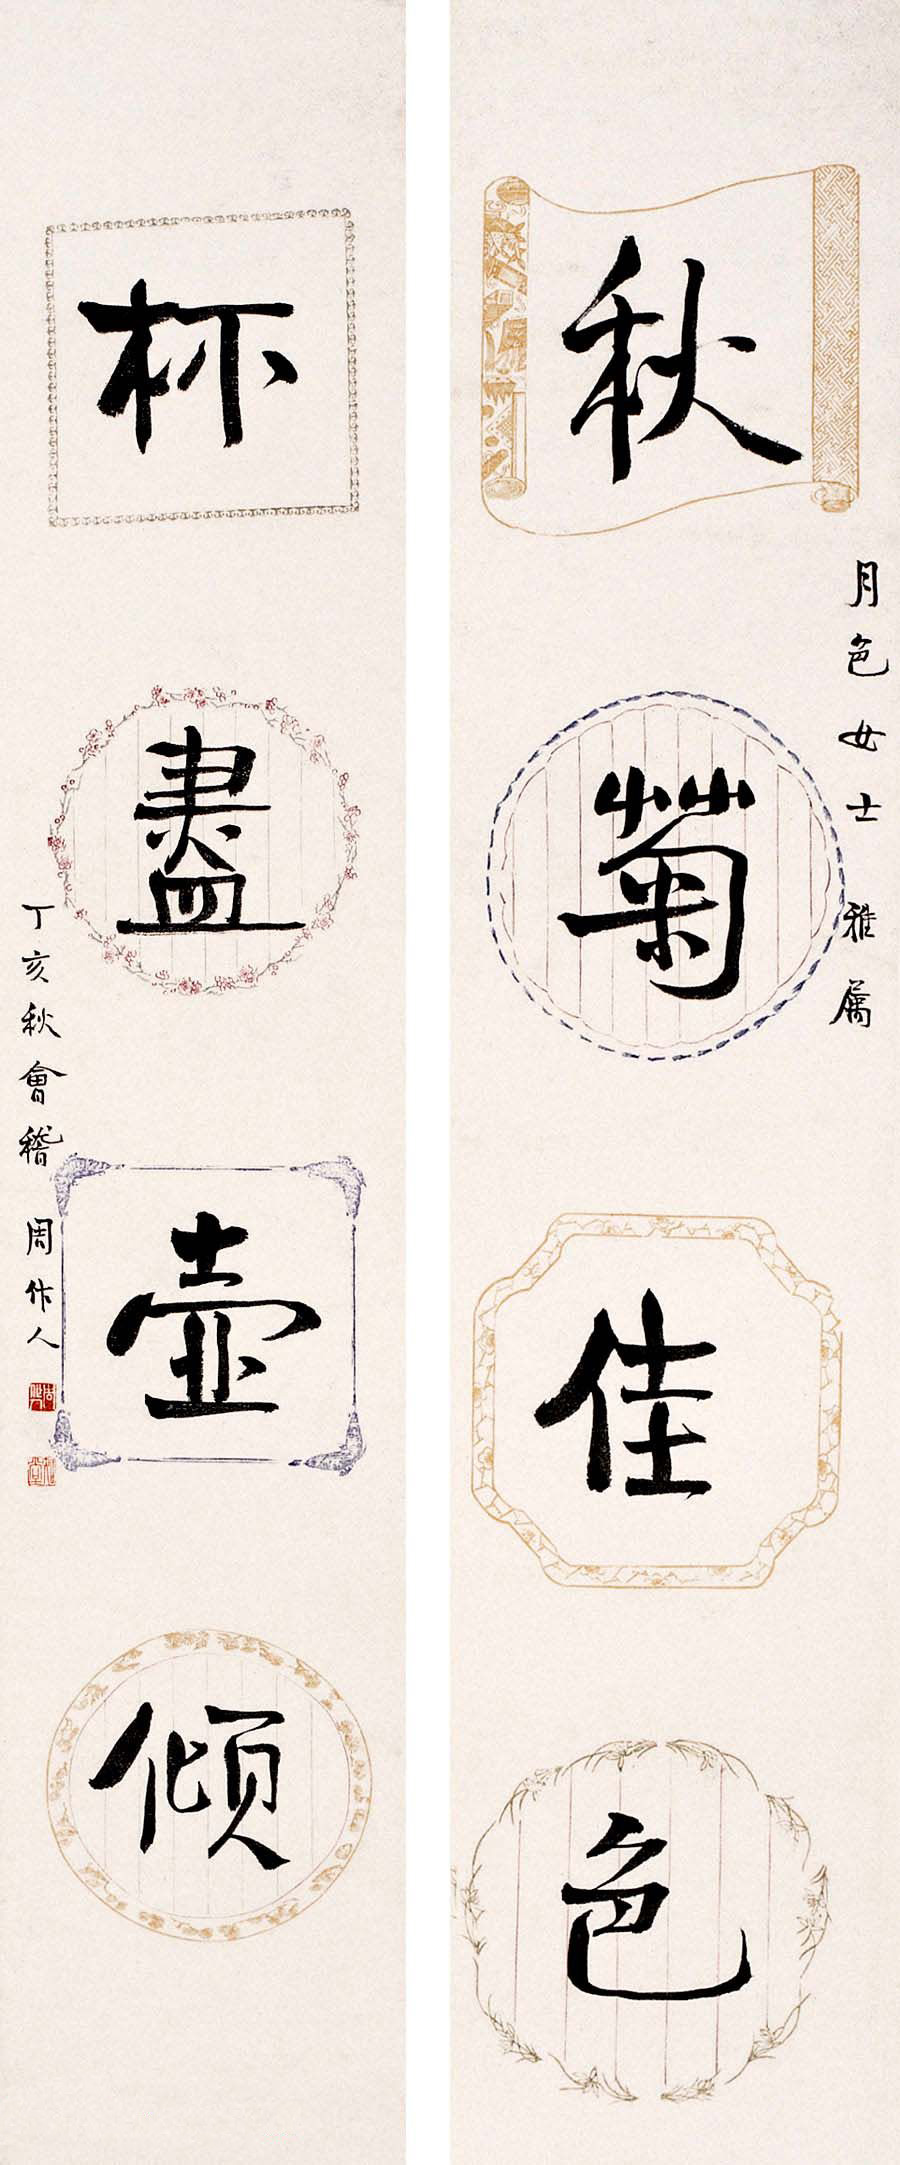 秋菊佳色
月色女士雅属
杯盡壺傾
丁亥秋會稽周作人